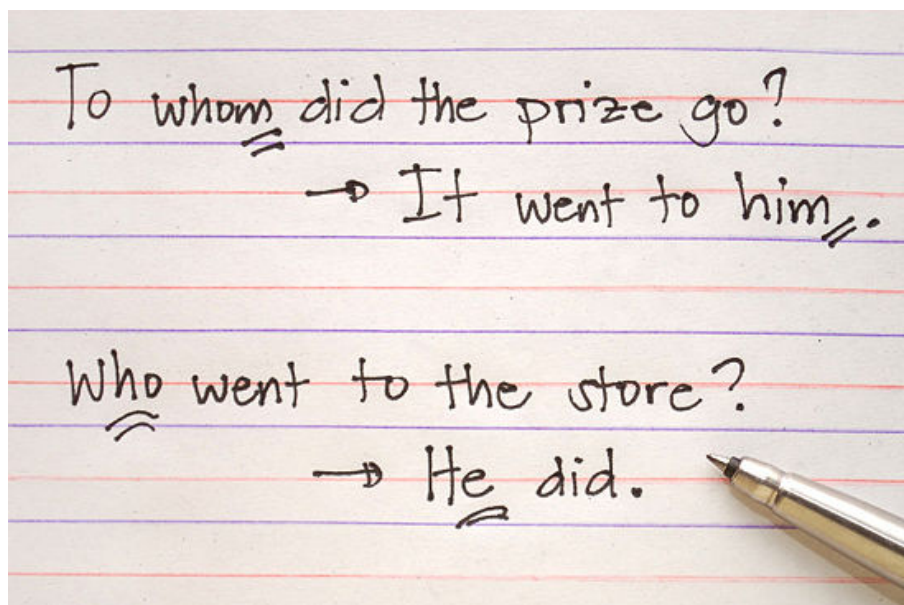 To whom did the prize go?
→ It went to him.
Who went to the store?
→ He did.